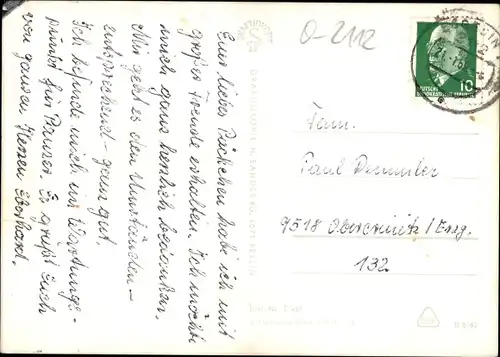 O-2112
Euer liebes Päckchen habe ich mit
großer Freude erhalten. Ich möchte
mich ganz herzlich bedanken.
Mir geht es den Umständen-
entsprechend - ganz gut
Ich befinde mich im Wartungs-
punkt für Panzer. Es grüßt Euch
von ganzem Herzen Eberhard.
10
DEUTSCHE
DEMOKRATISCHE REPUBLIK
Fam.
Paul Demmler
9518 Obercrinitz / Erzg.
132